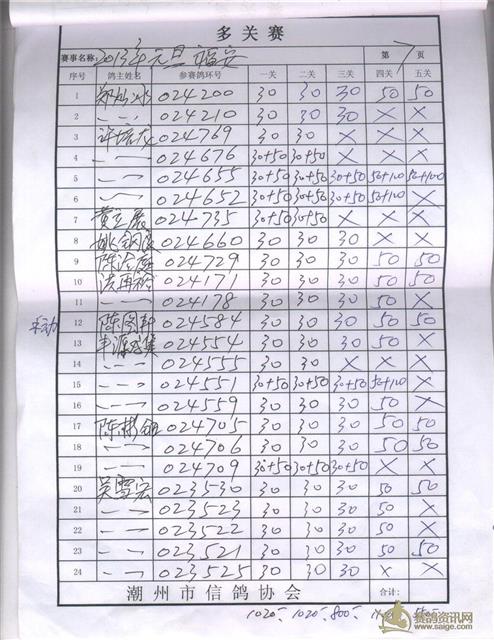 多关赛
赛事名称: 2013年元旦福安 第 7 页
序号 鸽主姓名 参赛鸽环号 一关 二关 三关 四关 五关
1 024200 30 30 30 50 50
2 〃 024210 30 30 30 × ×
3 许培友 024769 30 30 × × ×
4 〃 024676 30+50 30+50 × × ×
5 〃 024655 30+50 30+50 30+50 50+100 50+100
6 〃 024652 30+50 30+50 30+50 50+100 ×
7 024735 30+50 30+50 × × ×
8 024660 30 30 30 × ×
9 024729 30 30 30 50 50
10 024171 30 30 30 50 50
11 〃 024178 30 30 30 50 ×
12 024584 30 30 30 50 50
13 024554 30 30 30 50 ×
14 〃 024555 30 30 × × ×
15 〃 024551 30+50 30+50 30+50 50+100 ×
16 〃 024559 30 30 30 50 ×
17 陈彬 024705 30 30 30 50 50
18 〃 024706 30 30 30 50 50
19 〃 024709 30+50 30+50 30+50 × ×
20 吴雪宏 023530 30 30 30 50 50
21 〃 023523 30 30 30 50 ×
22 〃 023522 30 30 30 50 ×
23 〃 023521 30 30 30 50 50
24 〃 023525 30 30 30 × ×
潮州市信鸽协会 合计:
1020- 1020- 800-
赛鸽资讯网
www.saige.com